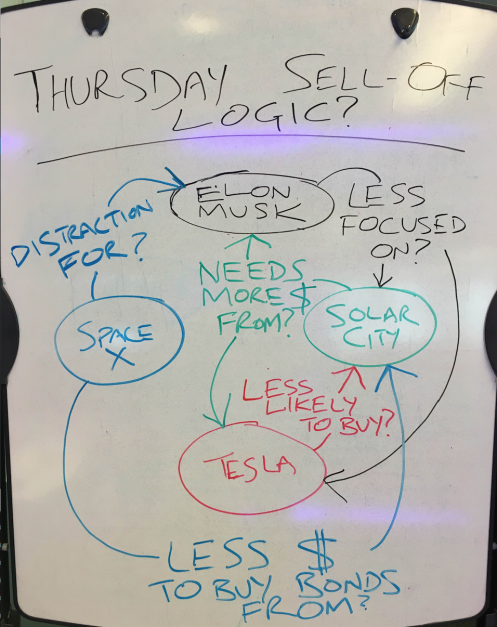 THURSDAY SELL-OFF
LOGIC?
ELON
MUSK
LESS
FOCUSED
ON?
DISTRACTION
FOR?
NEEDS
MORE $
FROM?
SPACE
X
SOLAR
CITY
LESS
LIKELY
TO BUY?
TESLA
LESS $
TO BUY BONDS
FROM?